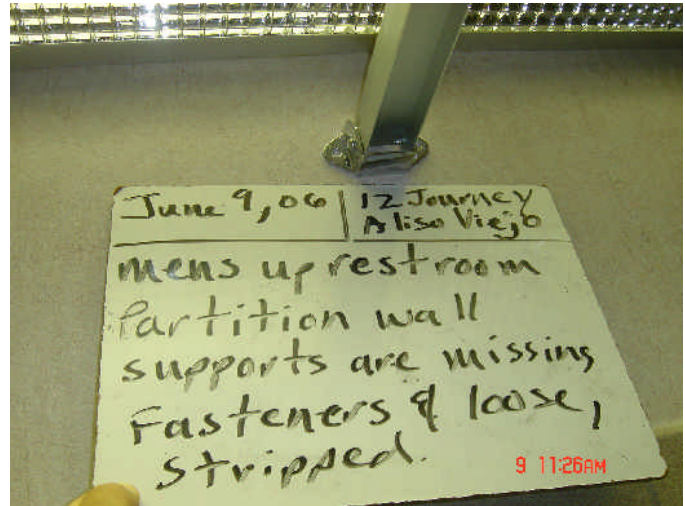 June 9, 06 | 12 Journey
Aliso Viejo
mens up restroom
Partition wall
supports are missing
Fasteners & loose,
stripped.
9 11:26AM